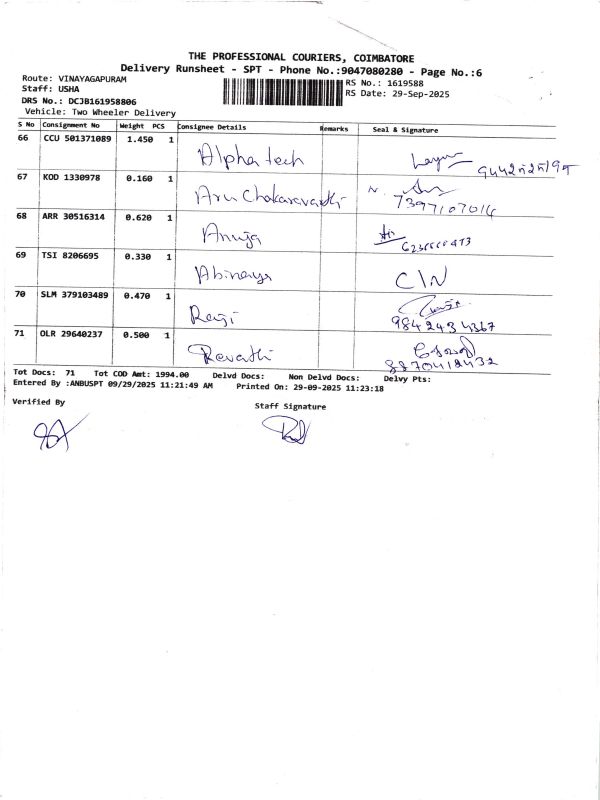 THE PROFESSIONAL COURIERS, COIMBATORE
Delivery Runsheet - SPT - Phone No.:9047080280 - Page No.:6
Route: VINAYAGAPURAM
RS No.: 1619588
Staff: USHA
RS Date: 29-Sep-2025
DRS No.: DCJB161958806
Vehicle: Two Wheeler Delivery
S No Consignment No Weight PCS Consignee Details Remarks Seal & Signature
66 CCU 501371089 1.450 1 Alpha tech
67 KOD 1330978 0.160 1 Aru Chakaravarthi 7397107014
68 ARR 30516314 0.620 1 Anuja
69 TSI 8206695 0.330 1 Abinaya C/N
70 SLM 379103489 0.470 1 Raji 9842434367
71 OLR 29640237 0.500 1 Revathi 8870418432
Tot Docs: 71 Tot COD Amt: 1994.00 Delvd Docs: Non Delvd Docs: Delvy Pts:
Entered By :ANBUSPT 09/29/2025 11:21:49 AM Printed On: 29-09-2025 11:23:18
Verified By Staff Signature